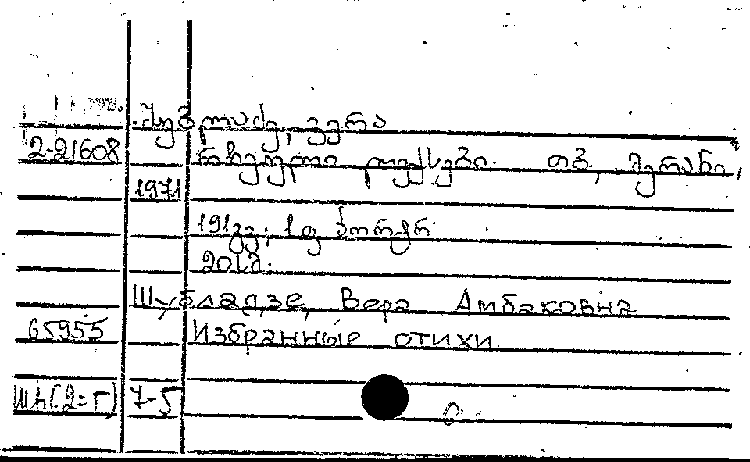 შუბლაძე, ვერა
2-21608 რჩეული ლექსები. თბ., მერანი,
1971
191გვ; 1ფ პორტრ.
Шубладзе, Вера Амбаковна
65955 Избранные стихи
Шћ(2=Г) 7-5